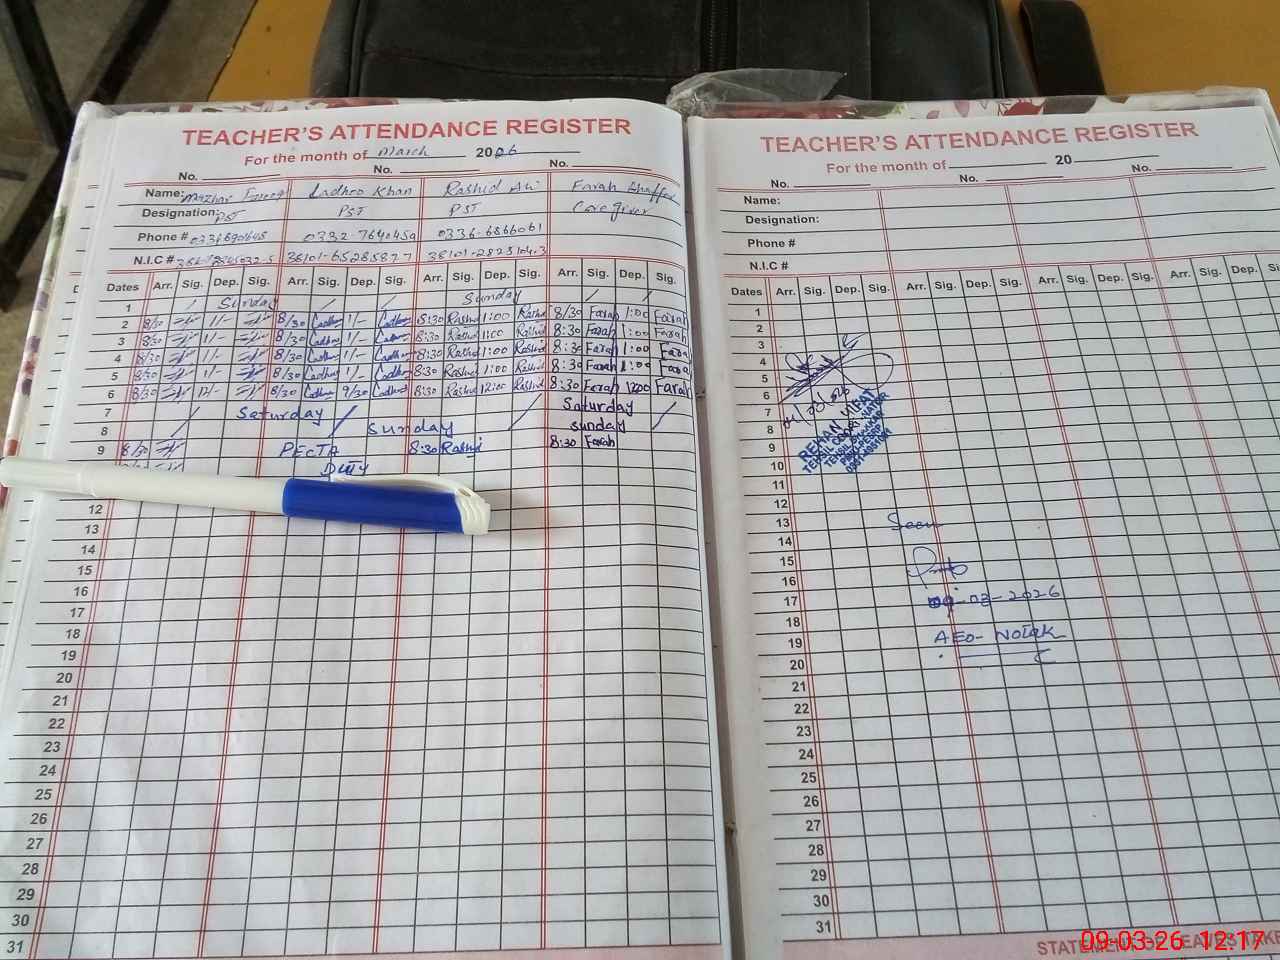 TEACHER'S ATTENDANCE REGISTER
For the month of March 2026
No. No. No.
Name: Mazhar Farooq Ladhoo Khan Rashid Ali Farah Ghaffar
Designation: PST PST PST Caregiver
Phone # 0332-7640459 0336-6866061
N.I.C # 38101-2825104-3
Dates Arr. Sig. Dep. Sig. Arr. Sig. Dep. Sig. Arr. Sig. Dep. Sig. Arr. Sig. Dep. Sig.
1 Sunday Sunday
2 8/30 1/- 8/30 1/- 8:30 Rashid 1:00 Rashid 8/30 Farah 1:00 Farah
3 8/30 1/- 8/30 1/- 8:30 Rashid 1:00 Rashid 8:30 Farah 1:00 Farah
4 8/30 1/- 8/30 1/- 8:30 Rashid 1:00 Rashid 8:30 Farah 1:00 Farah
5 8/30 1/- 8/30 1/- 8:30 Rashid 1:00 Rashid 8:30 Farah 1:00 Farah
6 8/30 12/- 8/30 8:30 Rashid 12:00 Rashid 8:30 Farah 1200 Farah
7 Saturday Saturday
8 Sunday Sunday
9 8/30 PECTA 8:30 Rashid 8:30 Farah
Duty
12
13
14
15
16
17
18
19
20
21
22
23
24
25
26
27
28
29
30
31
TEACHER'S ATTENDANCE REGISTER
For the month of 20
No. No. No.
Name:
Designation:
Phone #
N.I.C #
Dates Arr. Sig. Dep. Sig. Arr. Sig. Dep. Sig. Arr. Sig. Dep. Sig.
1
2
3
4
5
6
7
8
9
10
11
12
13 Seen
14
15
16
17 09-03-2026
18
19 AEO-
20
21
22
23
24
25
26
27
28
29
30
31
STATEMENT OF LEAVES TAKE
09-03-26 12:17